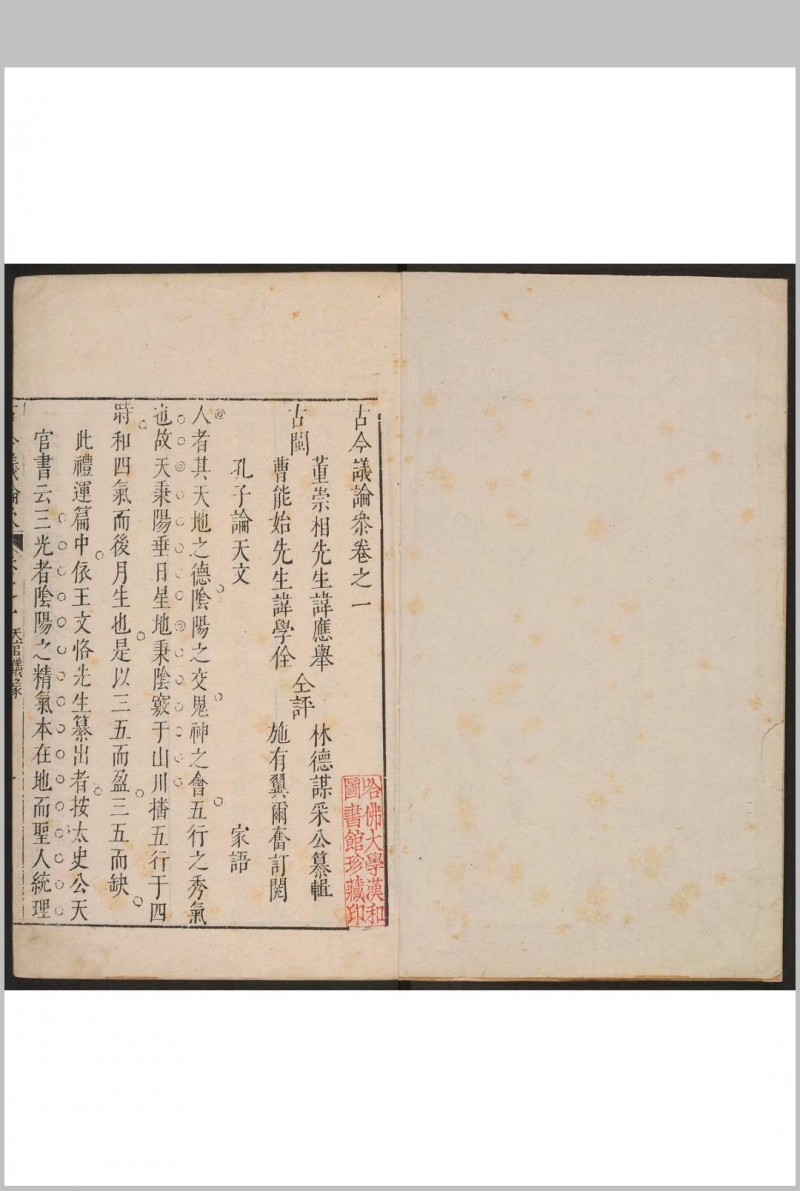 古今議論㕘卷之一
董崇相先生諱應舉
林德謀采公纂輯
古閩
仝評
曹能始先生諱學佺
施有翼爾奮訂閱
孔子論天文
家語
人者其天地之德陰陽之交鬼神之會五行之秀氣
也故天秉陽垂日星地秉陰竅于山川播五行于四
時和四氣而後月生也是以三五而盈三五而缺
此禮運篇中依王文恪先生纂出者按太史公天
官書云三光者陰陽之精氣本在地而聖人統理
哈佛大學漢和
圖書館珍藏印